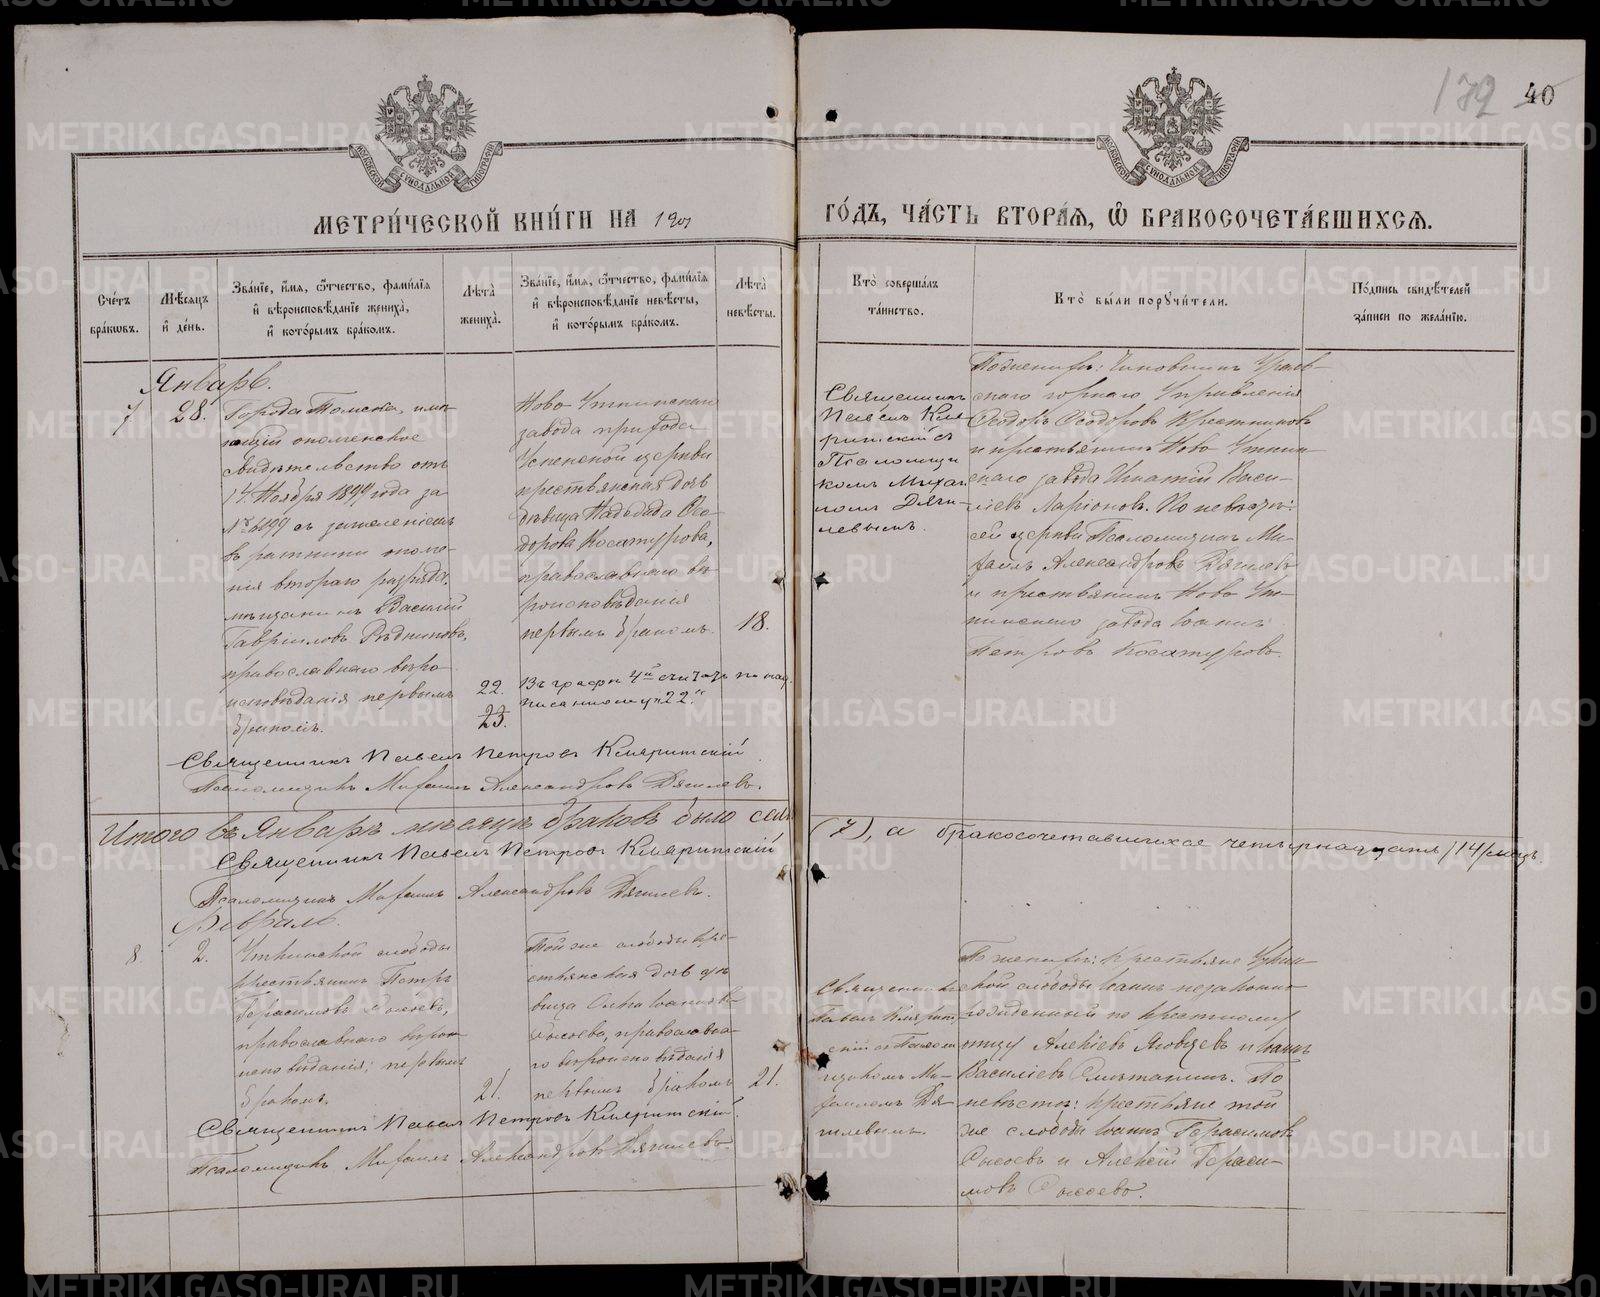 172 40
МЕТРИ́ЧЕСКОЙ КНИ́ГИ НА 1901
ГО́ДЪ, ЧА́СТЬ ВТОРА́Ѧ, Ѽ БРАКОСОЧЕТА́ВШИХСѦ.
МОСКОВСКОЙ СѴНОДАЛЬНОЙ ТИПОГРАФІИ
МОСКОВСКОЙ СѴНОДАЛЬНОЙ ТИПОГРАФІИ
Сче́тъ
бра́ковъ.
Мѣ́сяцъ
и҆ де́нь.
Зва́нїе, и҆́мя, ѻ҆́тчество, фами́лїя
и҆ вѣроисповѣ́данїе жениха̀,
и҆ кото́рымъ бра́комъ.
Лѣ́та
жениха̀.
Зва́нїе, и҆́мя, ѻ҆́тчество, фами́лїя
и҆ вѣроисповѣ́данїе невѣ́сты,
и҆ кото́рымъ бра́комъ.
Лѣ́та
невѣ́сты.
Кто̀ соверша́лъ
та́инство.
Кто̀ бы́ли порꙋчи́тели.
По́дпись свидѣ́телей
за́писи по жела́нїю.
Январь.
7
28.
Города Томска, имѣ-
ющій ополченское
свидѣтельство отъ
14 Ноября 1899 года за
№ 4199 съ зачисленіемъ
въ ратники ополче-
нія втораго разряда,
мѣщанинъ Василій
Гавріиловъ Рѣдниковъ,
православнаго вѣро-
исповѣданія первымъ
бракомъ.
22.
23.
Ново Уткинскаго
завода прихода
Успенской церкви
крестьянская дочь
дѣвица Надежда Ѳео-
дорова Косатурова,
православнаго вѣ-
роисповѣданія
первымъ бракомъ.
18.
Въ графѣ 4й считать по над-
писанному "22."
Священникъ Павелъ
съ
Псаломщи-
комъ Миха-
иломъ Дяги-
левымъ.
По женихѣ: Чиновникъ Ураль-
скаго горнаго Управленія
Ѳеодоръ Ѳеодоровъ Крестниковъ
и крестьянинъ Ново Уткин-
скаго завода Игнатій Васи-
ліевъ Ларіоновъ. По невѣстѣ:
сей церкви Псаломщикъ Ми-
хаилъ Александровъ Дягилевъ
и крестьянинъ Ново Ут-
кинскаго завода Іоаннъ
Петровъ Косатуровъ.
Священникъ Павелъ Петровъ
Псаломщикъ Михаилъ Александровъ Дягилевъ.
Итого въ Январѣ мѣсяцѣ браковъ было семь
(7), а бракосочетавшихся четырнадцать /14/ лицъ.
Священникъ Павелъ Петровъ
Псаломщикъ Михаилъ Александровъ Дягилевъ.
Февраль.
8.
2.
Уткинской слободы
крестьянинъ Петръ
Герасимовъ Сысоевъ,
православнаго вѣрои-
сповѣданія; первымъ
бракомъ.
21.
Той же слободы кре-
стьянская дочь дѣ-
вица Ольга Іоаннова
Сысоева, православна-
го вѣроисповѣданія
первымъ бракомъ
21.
Священникъ
Павелъ
съ Псалом-
щикомъ Ми-
хаиломъ Дя-
гилевымъ.
По женихѣ: крестьяне Уткин-
ской слободы Іоаннъ незаконно-
рожденный по крестному
отцу Алексѣевъ Яговцевъ и Іоаннъ
Василіевъ Сметанинъ. По
невѣстѣ: крестьяне той
же слободы Іоаннъ Герасимовъ
Сысоевъ и Алексѣй Гераси-
мовъ Сысоевъ.
Священникъ Павелъ Петровъ
Псаломщикъ Михаилъ Александровъ Дягилевъ
METRIKI.GASO-URAL.RU